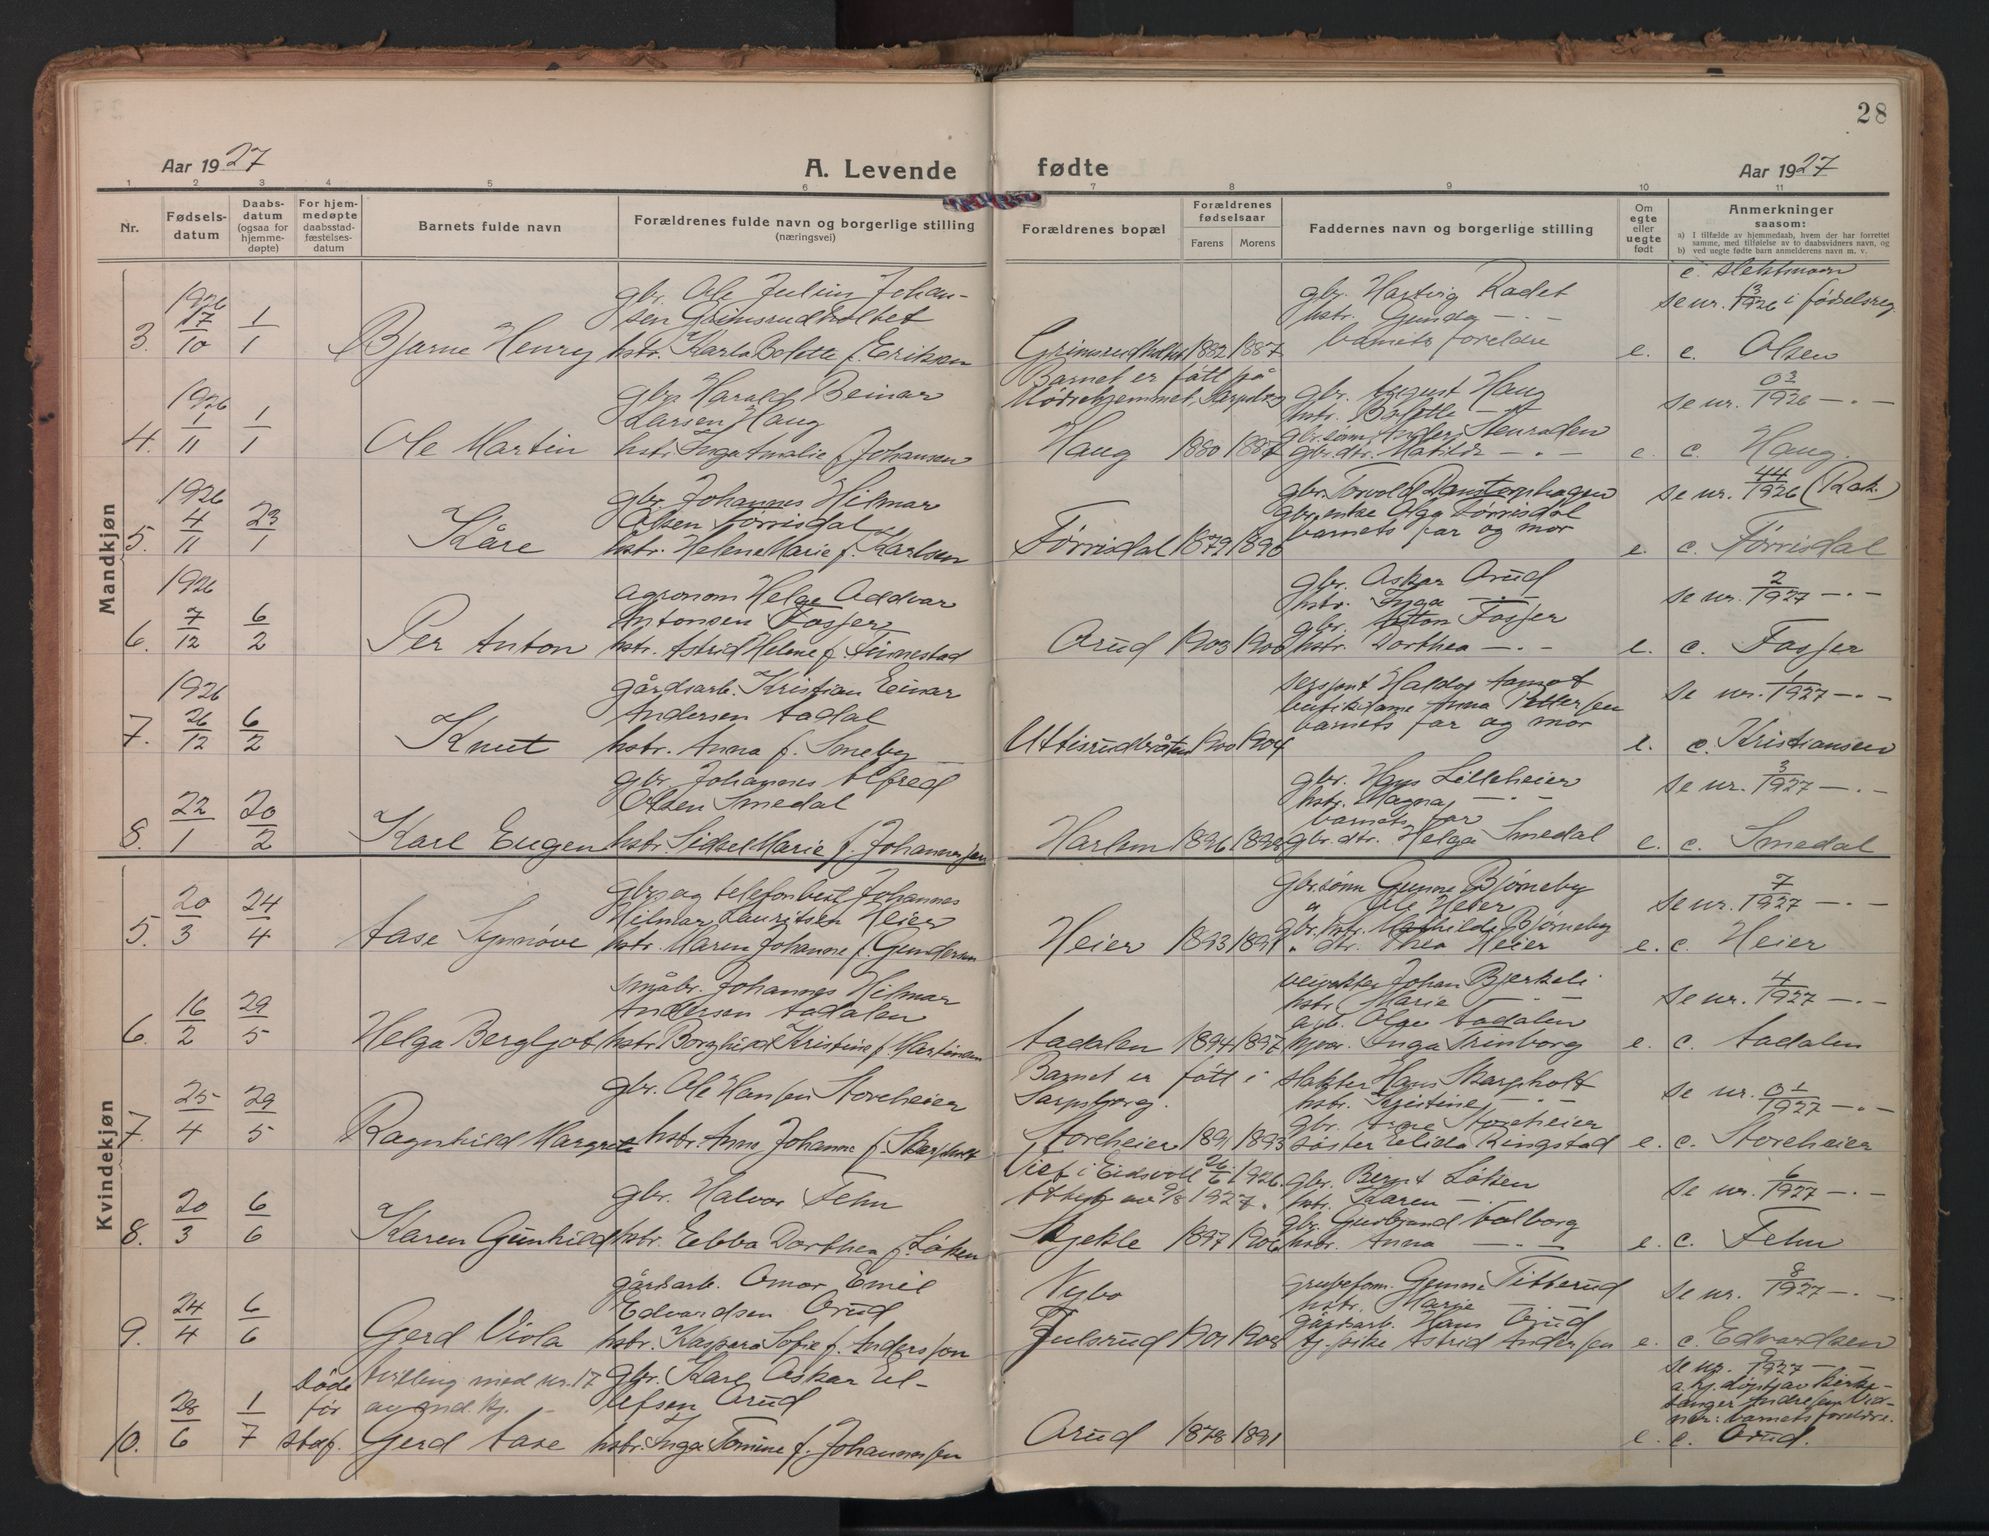 28
Aar 1927 A. Levende fødte Aar 1927
1 2 3 4 5 6 7 8 9 10 11
Nr.
Fødsels-
datum
Daabs-
datum
(ogsaa for
hjemme-
døpte)
For hjem-
medøpte
daabsstad-
fæstelses-
datum
Barnets fulde navn
Forældrenes fulde navn og borgerlige stilling
(næringsvei)
Forældrenes bopæl
Forældrenes
fødselsaar
Farens Morens
Faddernes navn og borgerlige stilling
Om
egte
eller
uegte
født
Anmerkninger
saasom:
a) I tilfælde av hjemmedaab, hvem der har forrettet
samme, med tilføielse av to daabsvidners navn, og
b) ved uegte fødte barn anmelderens navn m. v.
Mandkjøn
3. 1926 17/10 1/1 Bjarne Henry
gbr. Ole Julius Johan-
sen Grimsrudholtet
hstr. Karla Bolette f. Eriksen
1882 1887
gbr. Hartvig Radet
hstr. Gunda — " —
barnets foreldre
e.
se nr. 13/1926 i fødselsreg.
c. Olsen
4. 1926 1/11 1/1 Ole Martin
gbr. Harald Beinar
Larsen Haug
hstr. Inga Amalie f. Johansen
Barnet er født på
Mødrehjemmet, Sarpsborg
Haug 1880 1887
gbr. August Haug
hstr. Bolette — " —
gbr.sønn Anders Stenroden
gbr.dtr. Matilde — " —
e.
se nr. 03/1926 — " —
c. Haug.
5. 1926 4/11 23/1 Kåre
gbr. Johannes Hilmar
Olsen Førrisdal
hstr. Helene Marie f. Karlsen
Førrisdal 1879 1890
gbr. Torvald Danstorphagen
gbr.enke Olga Førrisdal
barnets far og mor
e.
se nr. 44/1926 (Rak.)
c. Førrisdal
6. 1926 7/12 6/2 Per Anton
agronom Helge Oddvar
Antonsen Fosser
hstr. Astrid Helene f. Finnestad
Orud 1903 1906
gbr. Oskar Orud
hstr. Inga — " —
gbr. Anton Fosser
hstr. Dorthea — " —
e.
se nr. 2/1927 — " —
c. Fosser
7. 1926 26/12 6/2 Knut
gårdsarb. Kristian Einar
Andersen Aadal
hstr. Anna f. Smeby
Uttisrudbråten 1900 1904
butikdame Anna Pettersen
barnets far og mor
e.
se nr. 1/1927 — " —
c. Kristiansen
8. 22/1 20/2 Karl Eugen
gbr. Johannes Alfred
Olsen Smedal
hstr. Sidsel Marie f. Johannessen
1896 1898
gbr. Hans Lilleheier
hstr. Magna — " —
barnets far
gbr.dtr. Helga Smedal
e.
se nr. 3/1927 — " —
c. Smedal
Kvindekjøn
5. 20/3 24/4 Aase Synnøve
gbr. og telefonbest. Johannes
Hilmar Lauritsen Heier
hstr. Maren Johanne f. Gundersen
Heier 1893 1891
gbr.sønn Gunnar Bjørneby
" Ole Heier
gbr. hstr. Mathilde Bjørneby
" dtr. Thea Heier
e.
se nr. 7/1927 — " —
c. Heier
6. 16/2 29/5 Helga Bergljot
småbr. Johannes Hilmar
Andersen Aadalen
hstr. Borghild Kristine f. Martinsen
Aadalen 1894 1897
veivokter Johan Bjerkeli
hstr. Marie — " —
arb. Olge Aadalen
e.
se nr. 4/1927 — " —
c. Aadalen
7. 25/4 29/5 Ragnhild Margrete
gbr. Ole Hansen Storeheier
hstr. Anna Johanne f. Skarpholt
Barnet er født i
Sarpsborg.
Storeheier 1891 1893
slakter Hans Skarpholt
hstr. Kristine — " —
gbr. Arne Storeheier
søster Elida Ringstad
e.
se nr. 01/1927 — " —
c. Storeheier
8. 20/3 6/6 Karen Gunhild
gbr. Halvor Fehn
hstr. Ebba Dorthea f. Løken
Viet i Eidsvoll 26/6 1926.
Skjekle 1897 1906
gbr. Bernt Løken
hstr. Karen — " —
gbr. Gudbrand Valborg
hstr. Anna — " —
e.
se nr. 6/1927 — " —
c. Fehn
9. 24/4 6/6 Gerd Viola
gårdsarb. Omar Emil
Edvardsen Orud
hstr. Kaspara Sofie f. Anderssen
Nybo
Julsrud 1901 1908
grubeform. Gunnar Titterud
hstr. Marie — " —
gårdsarb. Hans Orud
tj.pike Astrid Andersen
e.
se nr. 8/1927 — " —
c. Edvardsen
10. 28/6 1/7 døde
før
stadf.
tvilling med nr. 17
av md. kj.
Gerd Aase
gbr. Karl Oskar El-
lefsen Orud
hstr. Inga Tomine f. Johannessen
Orud 1878 1891
e.
se nr. 9/1927 —
a. hj.døpt av kirke-
sanger Andresen. Vid-
ner: barnets foreldre.
c. Orud.